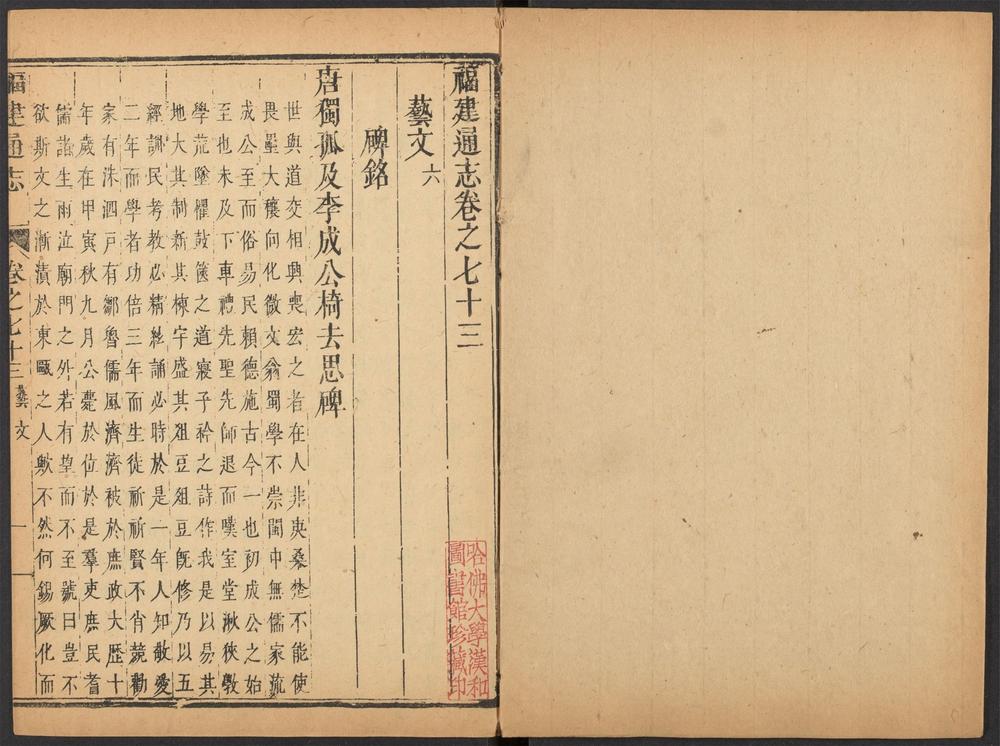 福建通志卷之七十三
藝文六
碑銘
唐獨孤及李成公椅去思碑
世與道交相興喪宏之者在人非庚桑楚不能使
畏壘大穰向化微文翁蜀學不崇閩中無儒家流
成公至而俗易民賴德施古今一也初成公之始
至也未及下車禮先聖先師退而嘆室堂湫狹敎
學荒墜懼鼓篋之道寢子衿之詩作我是以易其
地大其制新其棟宇盛其俎豆俎豆旣修乃以五
經訓民考教必精絃誦必時於是一年人知敬愛
二年而學者功倍三年而生徒祈祈賢不肖競勸
家有洙泗戸有鄒魯儒風濟濟被於庶政大歷十
年歲在甲寅秋九月公薨於位於是羣吏庶民耆
儒諸生雨泣廟門之外若有望而不至號曰豈不
欲斯文之漸漬於東甌之人歟不然何錫厥化而
福建通志
卷之七十三藝文
一
哈佛大學漢和
圖書館珍藏印